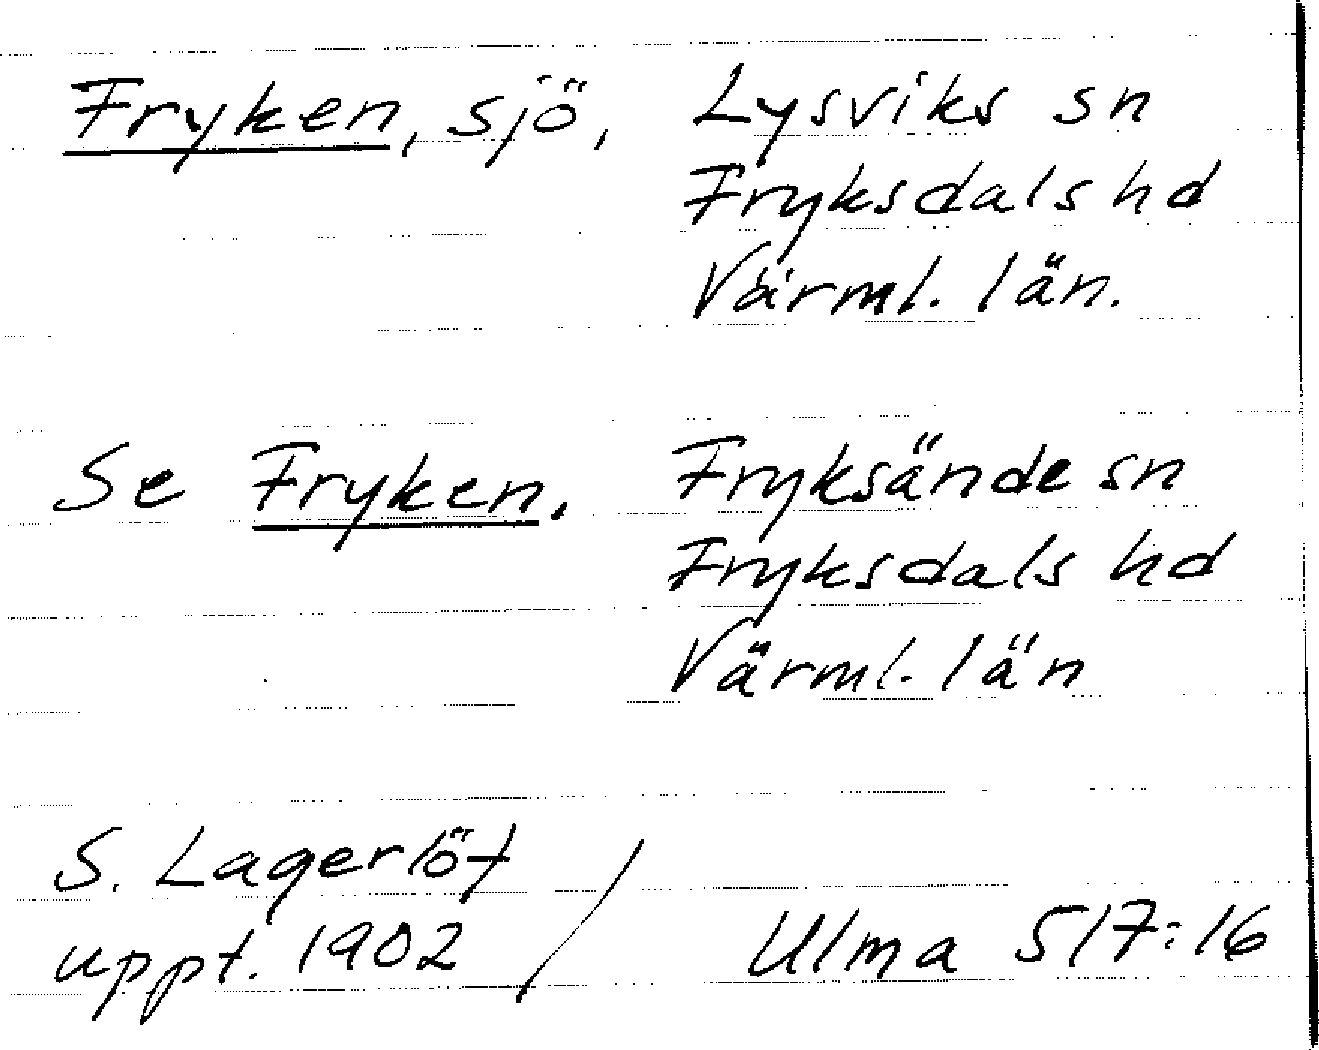 Fryken, sjö, Lysviks sn
Fryksdals hd
Värml. län.
Se Fryken. Fryksände sn
Fryksdals hd
Värml. län
S. Lagerlöf
uppt. 1902 / Ulma 517:16